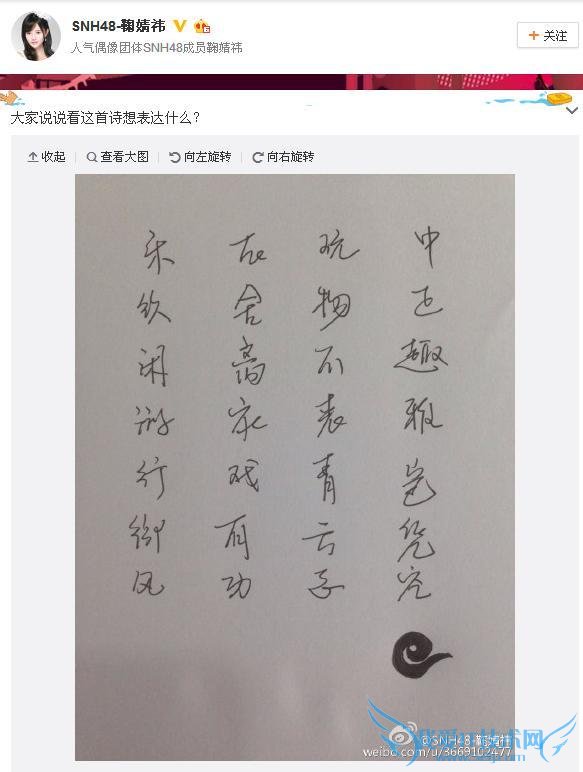 SNH48-鞠婧祎
人气偶像团体SNH48成员鞠婧祎
+ 关注
大家说说看这首诗想表达什么？
收起 查看大图 向左旋转 向右旋转
乐 闲游行御风
舍离家戏有功
玩物不表青云
中 趣雅岂凭空
@SNH48-鞠婧祎
weibo.com/u/3669102477